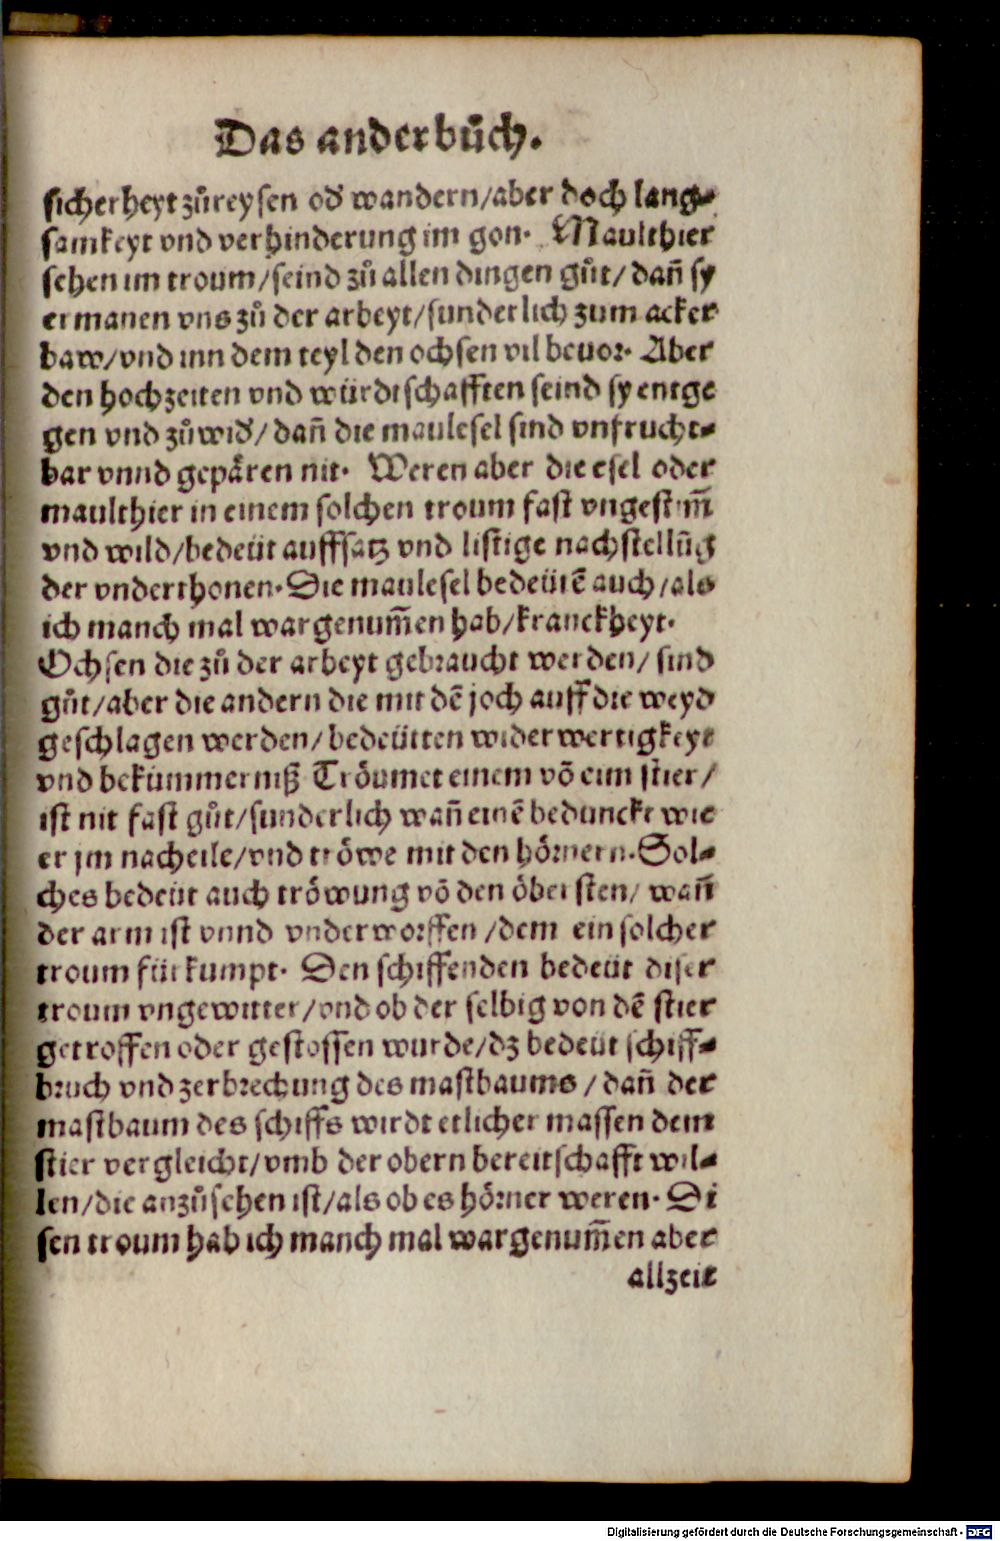 Das ander bůch.
sicherheyt zůreysen oď wandern/aber doch lang⸗
samkeyt vnd verhinderung im gon. Maulthier
sehen im troum/seind zů allen dingen gůt/dañ sy
ermanen vns zů der arbeyt/sunderlich zum acker
baw/vnd inn dem teyl den ochsen vil beuor. Aber
den hochzeiten vnd würdtschafften seind sy entge
gen vnd zůwiď/dañ die maulesel sind vnfrucht⸗
bar vnnd gepären nit. Weren aber die esel oder
maulthier in einem solchen troum fast vngestim̃
vnd wild/bedeüt auffsatz vnd listige nachstellũg
der vnderthonen. Die maulesel bedeütẽ auch/als
ich manch mal wargenum̃en hab/kranckheyt.
Ochsen die zů der arbeyt gebraucht werden/sind
gůt/aber die andern die mit dẽ joch auff die weyd
geschlagen werden/bedeütten widerwertigkeyt
vnd bekümmerniß Tröumet einem võ eim stier/
ist nit fast gůt/sunderlich wañ einẽ bedunckt wie
er jm nacheile/vnd tröwe mit den hörnern. Sol⸗
ches bedeüt auch tröwung võ den öbersten/wañ
der arm ist vnnd vnderworffen/dem ein solcher
troum fürkumpt. Den schiffenden bedeüt diser
troum vngewitter/vnd ob der selbig von dẽ stier
getroffen oder gestossen wurde/dz bedeüt schiff⸗
bruch vnd zerbrechung des mastbaums/dañ der
mastbaum des schiffs wirdt etlicher massen dem
stier vergleicht/vmb der obern bereitschafft wil⸗
len/die anzůsehen ist/als ob es hörner weren. Di
sen troum hab ich manch mal wargenum̃en aber
allzeit
Digitalisierung gefördert durch die Deutsche Forschungsgemeinschaft - DFG